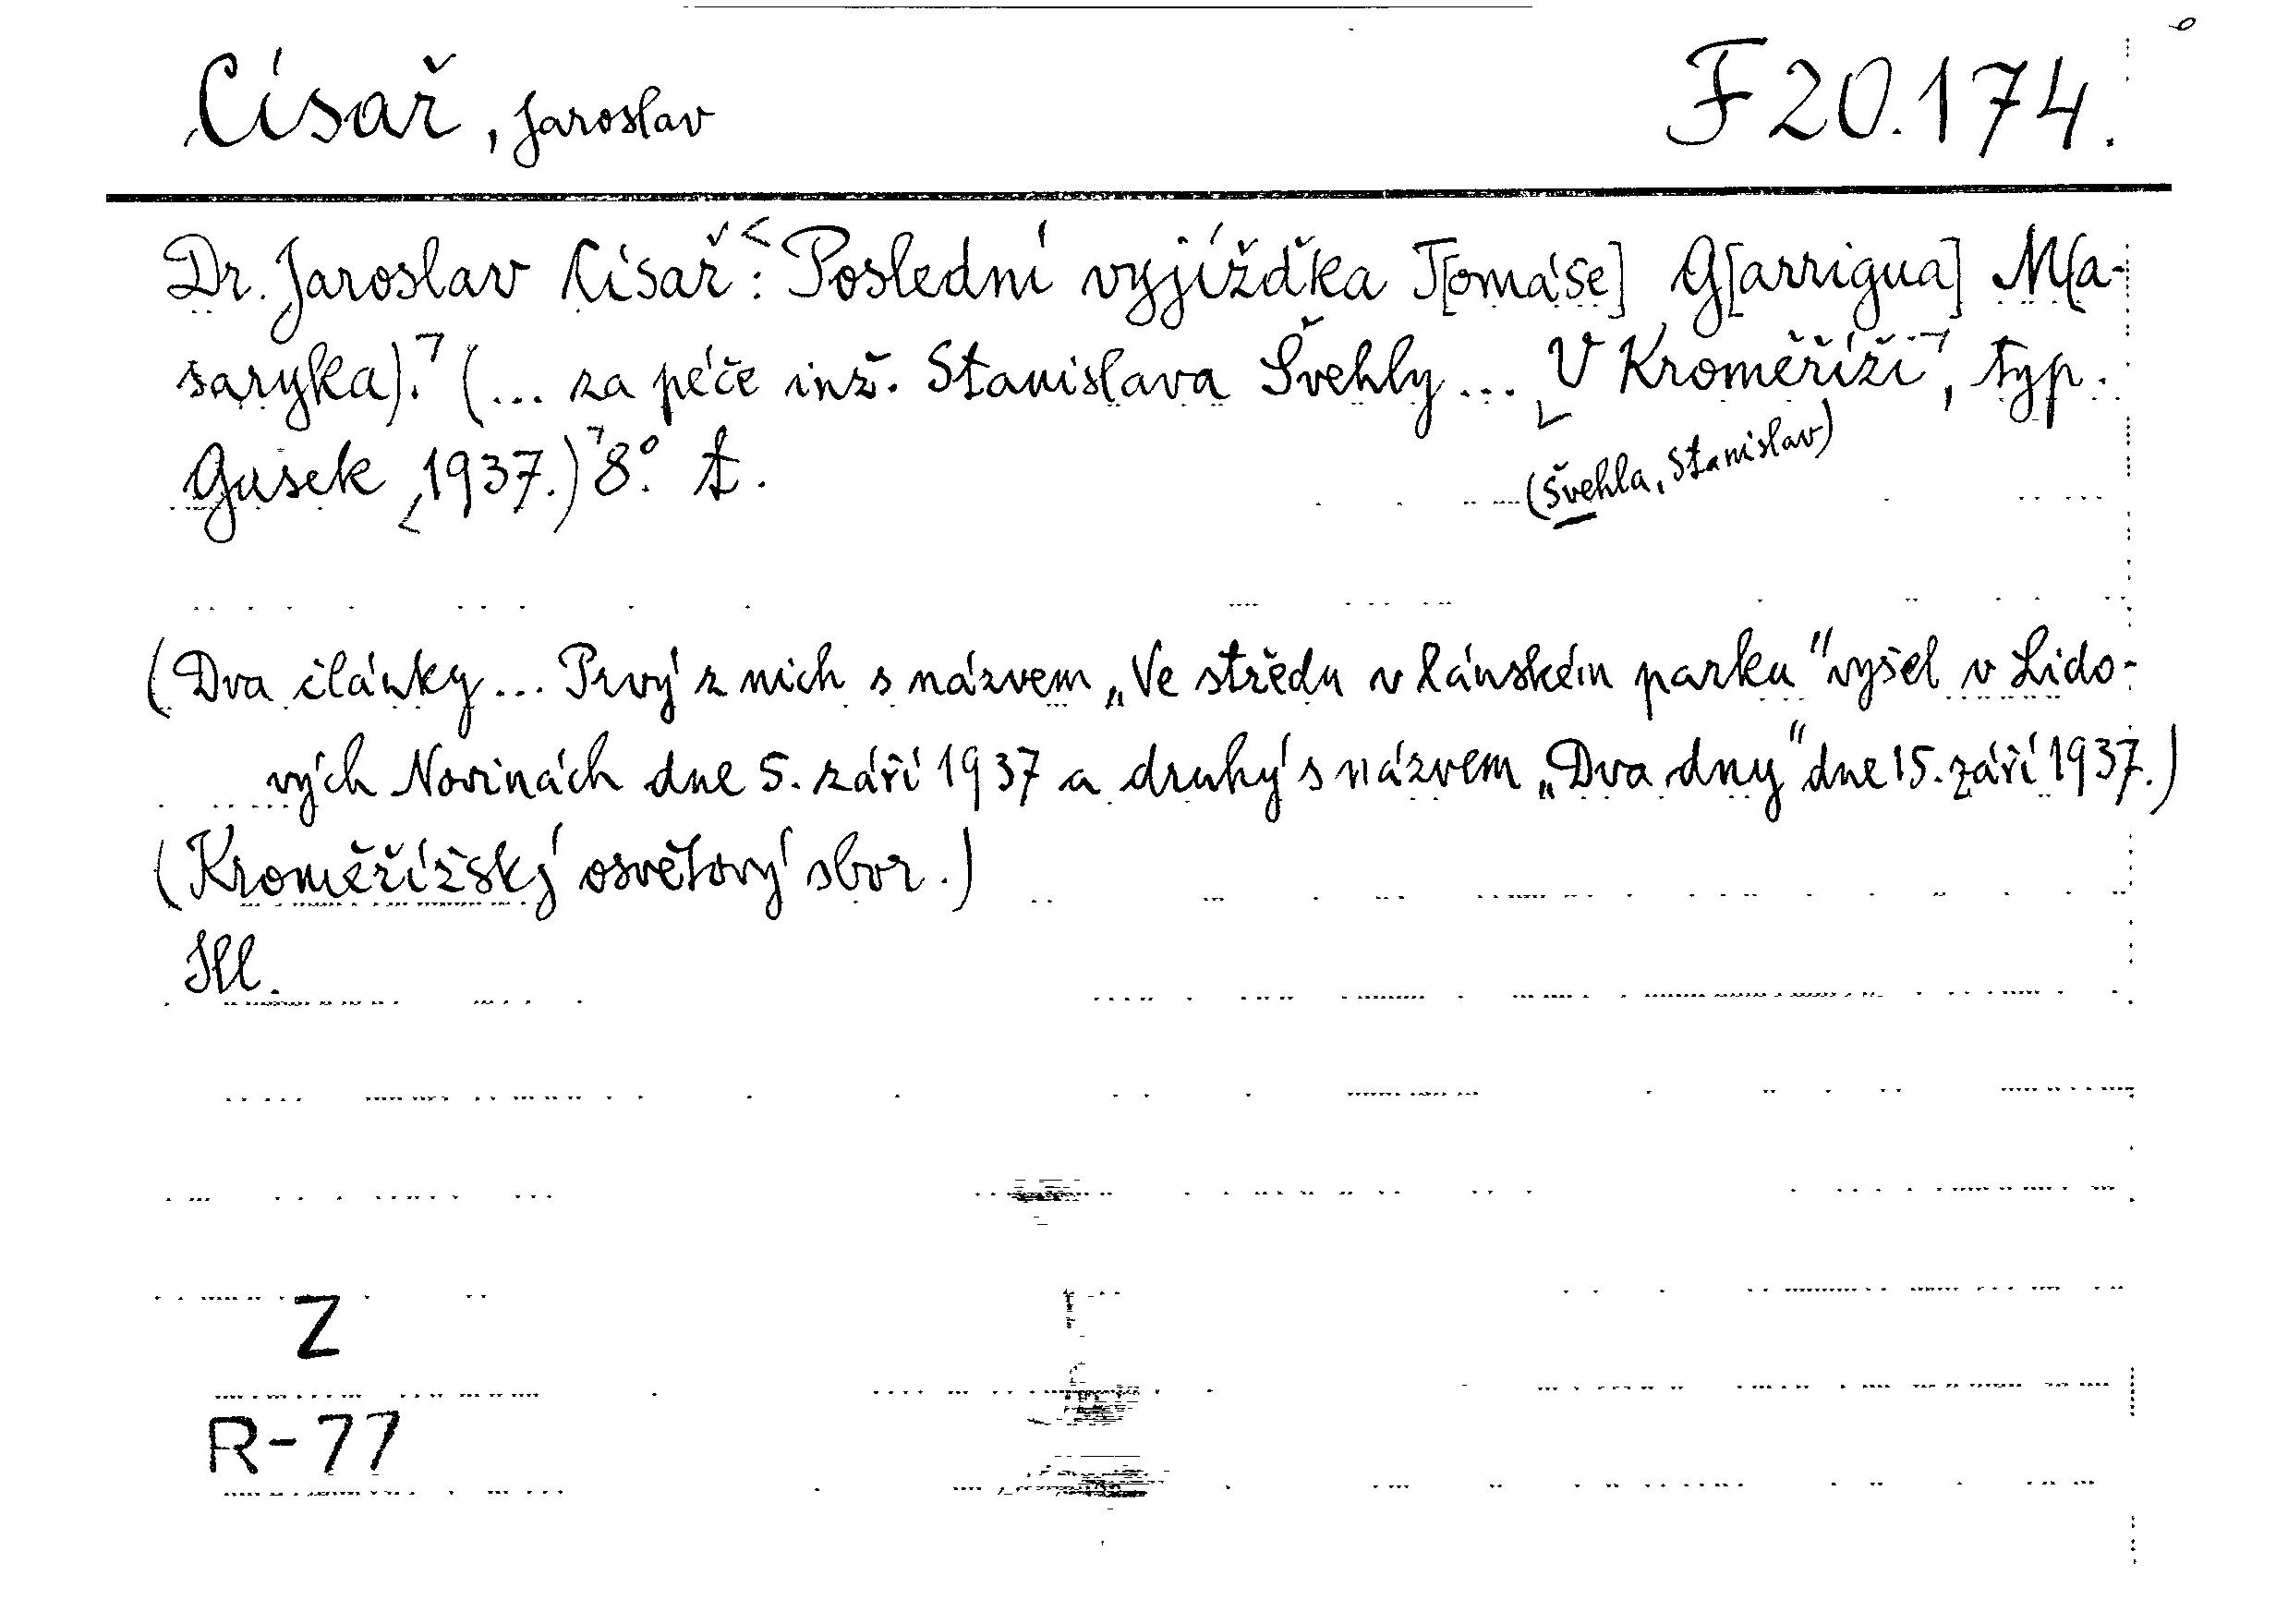 Císař, Jaroslav F 20.174.
Dr. Jaroslav Císař: Poslední vyjížďka T[omáše] G[arrigua] M(a-
saryka). (... za péče inž. Stanislava Švehly ... V Kroměříži, typ.
Gusek 1937.) 8°. A.
(Švehla, Stanislav)
(Dva články ... Prvý z nich s názvem „Ve středu v lánském parku" vyšel v Lido-
vých Novinách dne 5. září 1937 a druhý s názvem „Dva dny" dne 15. září 1937.)
(Kroměřížský osvětový sbor.)
Ill.
Z
R-77